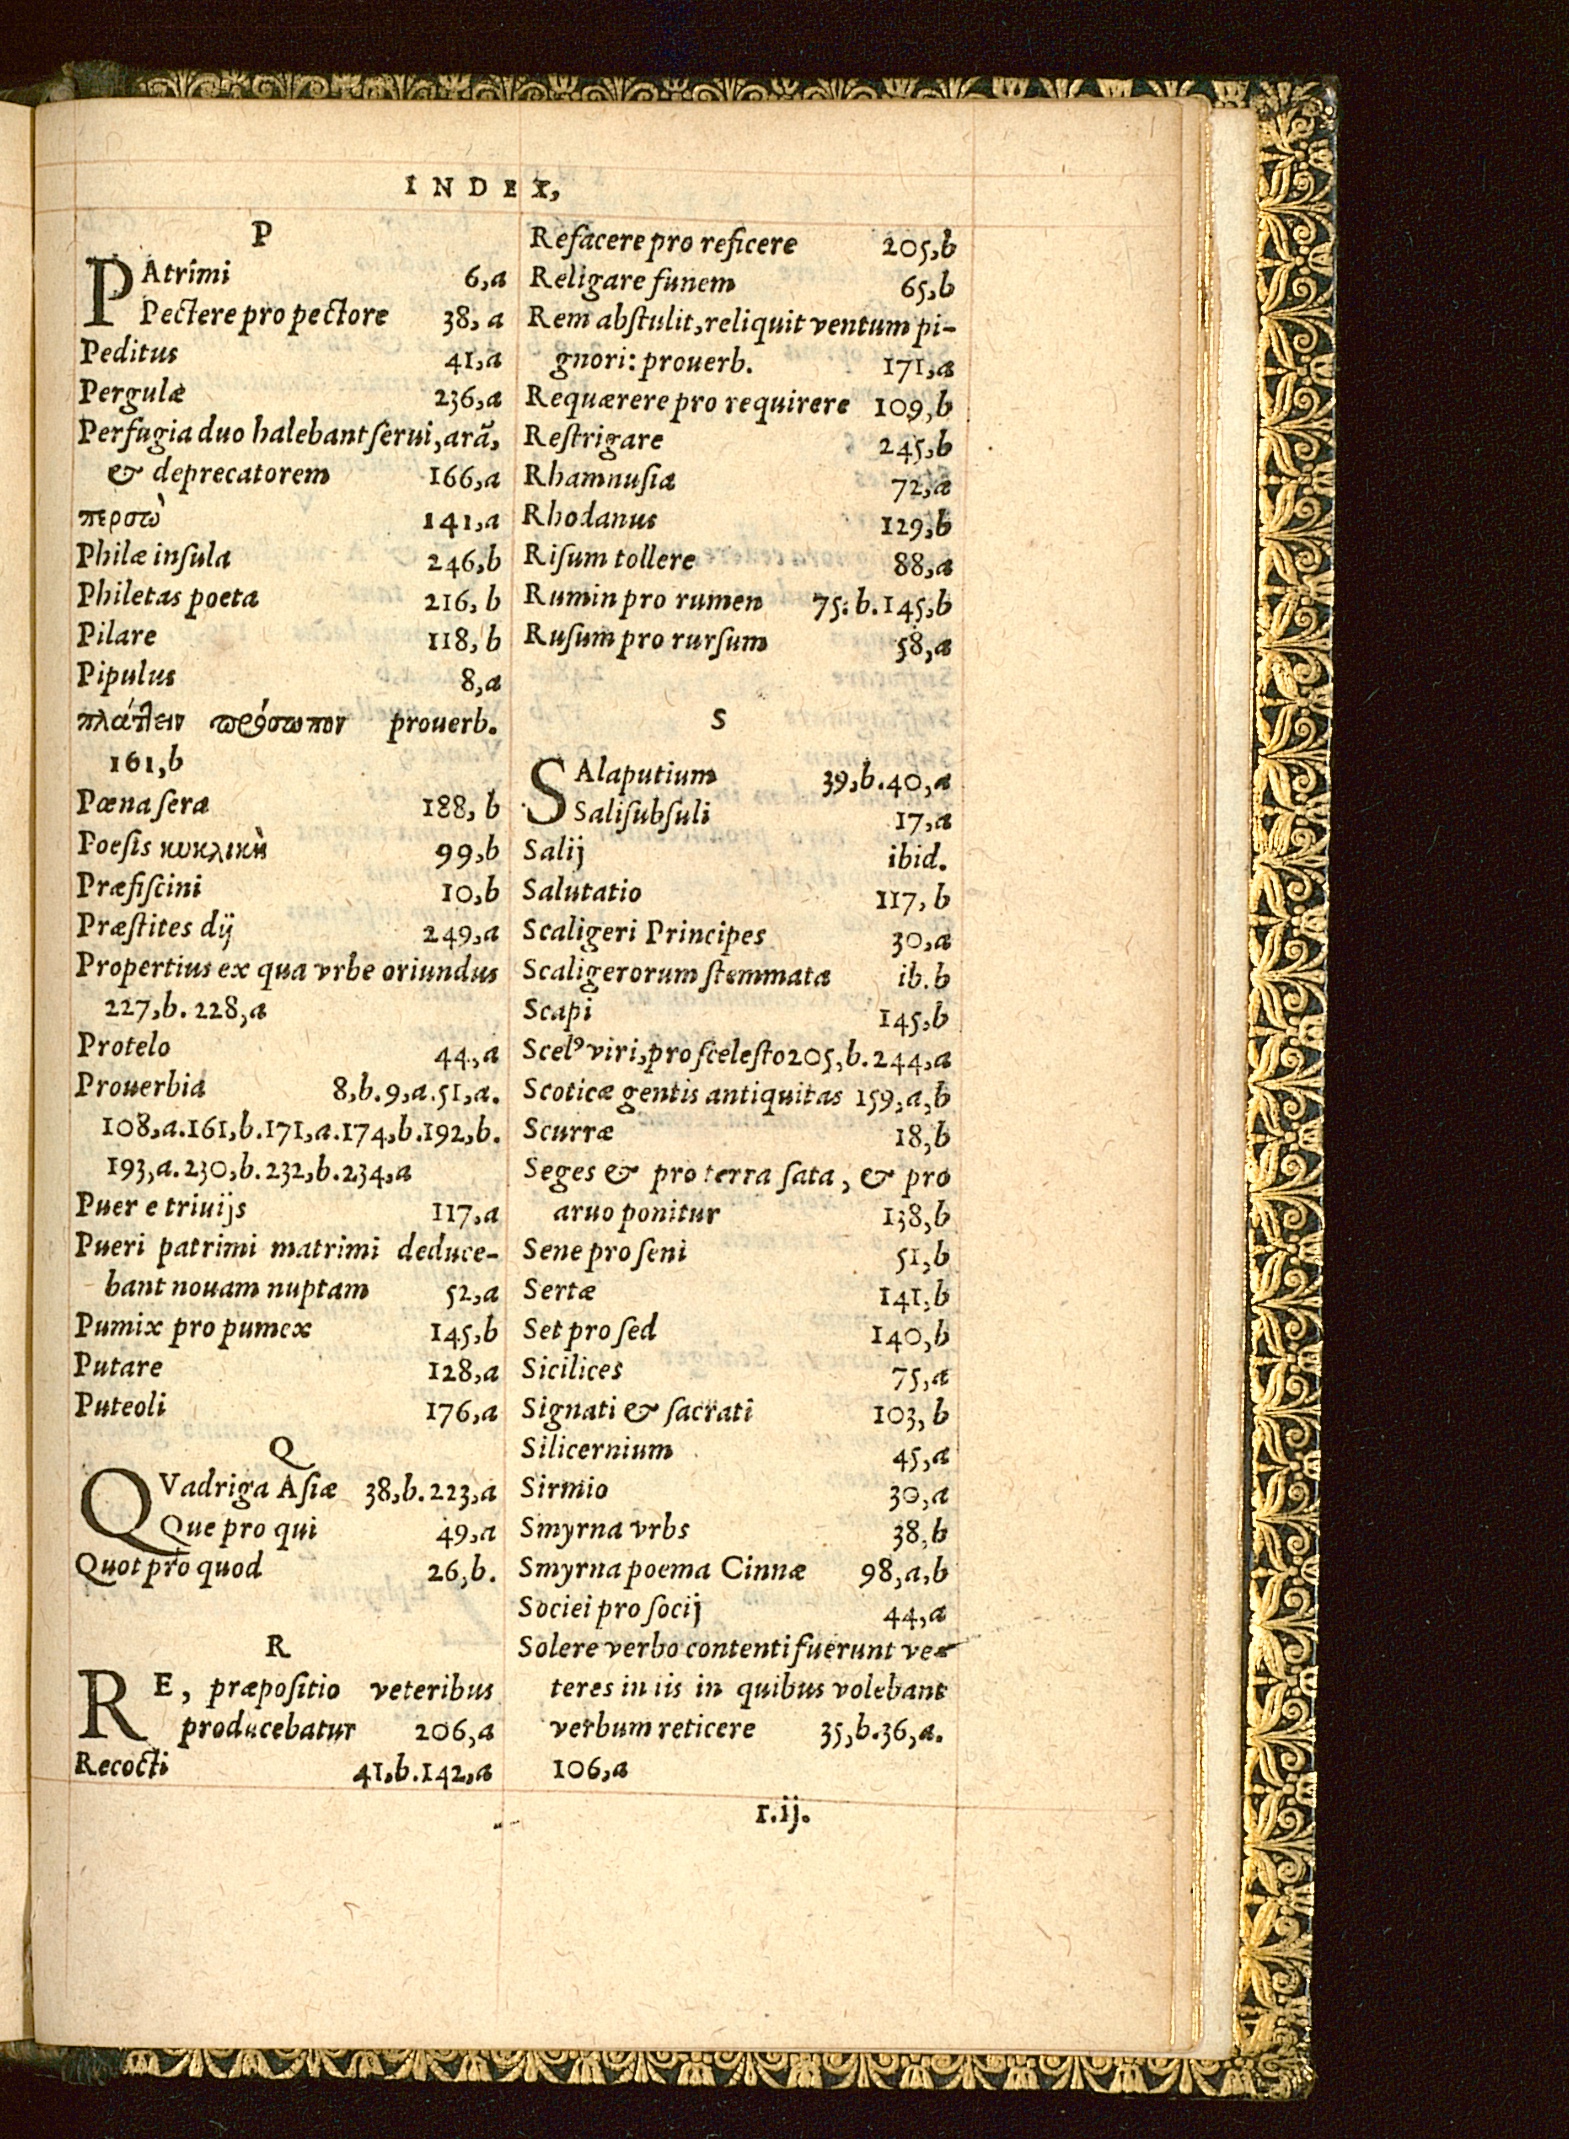 INDEX,
P
PAtrimi 6,a
Pectere pro pectore 38, a
Peditus 41,a
Pergulæ 236,a
Perfugia duo halebant serui, arã,
& deprecatorem 166,a
περσῶ 141,a
Philæ insula 246,b
Philetas poeta 216, b
Pilare 118, b
Pipulus 8,a
πλάττειν πρόσωπον prouerb.
161,b
Pœna sera 188, b
Poesis κυκλικὴ 99,b
Præfiscini 10,b
Præstites dij 249,a
Propertius ex qua vrbe oriundus
227,b. 228,a
Protelo 44,a
Prouerbia 8,b.9,a.51,a.
108,a.161,b.171,a.174,b.192,b.
193,a.230,b.232,b.234,a
Puer e triuijs 117,a
Pueri patrimi matrimi deduce-
bant nouam nuptam 52,a
Pumix pro pumex 145,b
Putare 128,a
Puteoli 176,a
Q
QVadriga Asiæ 38,b.223,a
Que pro qui 49,a
Quot pro quod 26,b.
R
RE, præpositio veteribus
producebatur 206,a
Recocti 41,b.142,a
Refacere pro reficere 205,b
Religare funem 65,b
Rem abstulit, reliquit ventum pi-
gnori: prouerb. 171,a
Requærere pro requirere 109,b
Restrigare 245,b
Rhamnusia 72,a
Rhodanus 129,b
Risum tollere 88,a
Rumin pro rumen 75: b.145,b
Rusum pro rursum 58,a
S
SAlaputium 39,b.40,a
Salisubsuli 17,a
Salij ibid.
Salutatio 117, b
Scaligeri Principes 30,a
Scaligerorum stemmata ib.b
Scapi 145,b
Scelꝰ viri, pro scelesto 205,b.244,a
Scoticæ gentis antiquitas 159,a,b
Scurræ 18,b
Seges & pro terra sata, & pro
aruo ponitur 138,b
Sene pro seni 51,b
Sertæ 141,b
Set pro sed 140,b
Sicilices 75,a
Signati & sacrati 103, b
Silicernium 45,a
Sirmio 30,a
Smyrna vrbs 38,b
Smyrna poema Cinnæ 98,a,b
Sociei pro socij 44,a
Solere verbo contenti fuerunt ve-
teres in iis in quibus volebant
verbum reticere 35,b.36,a.
106,a
r.ij.